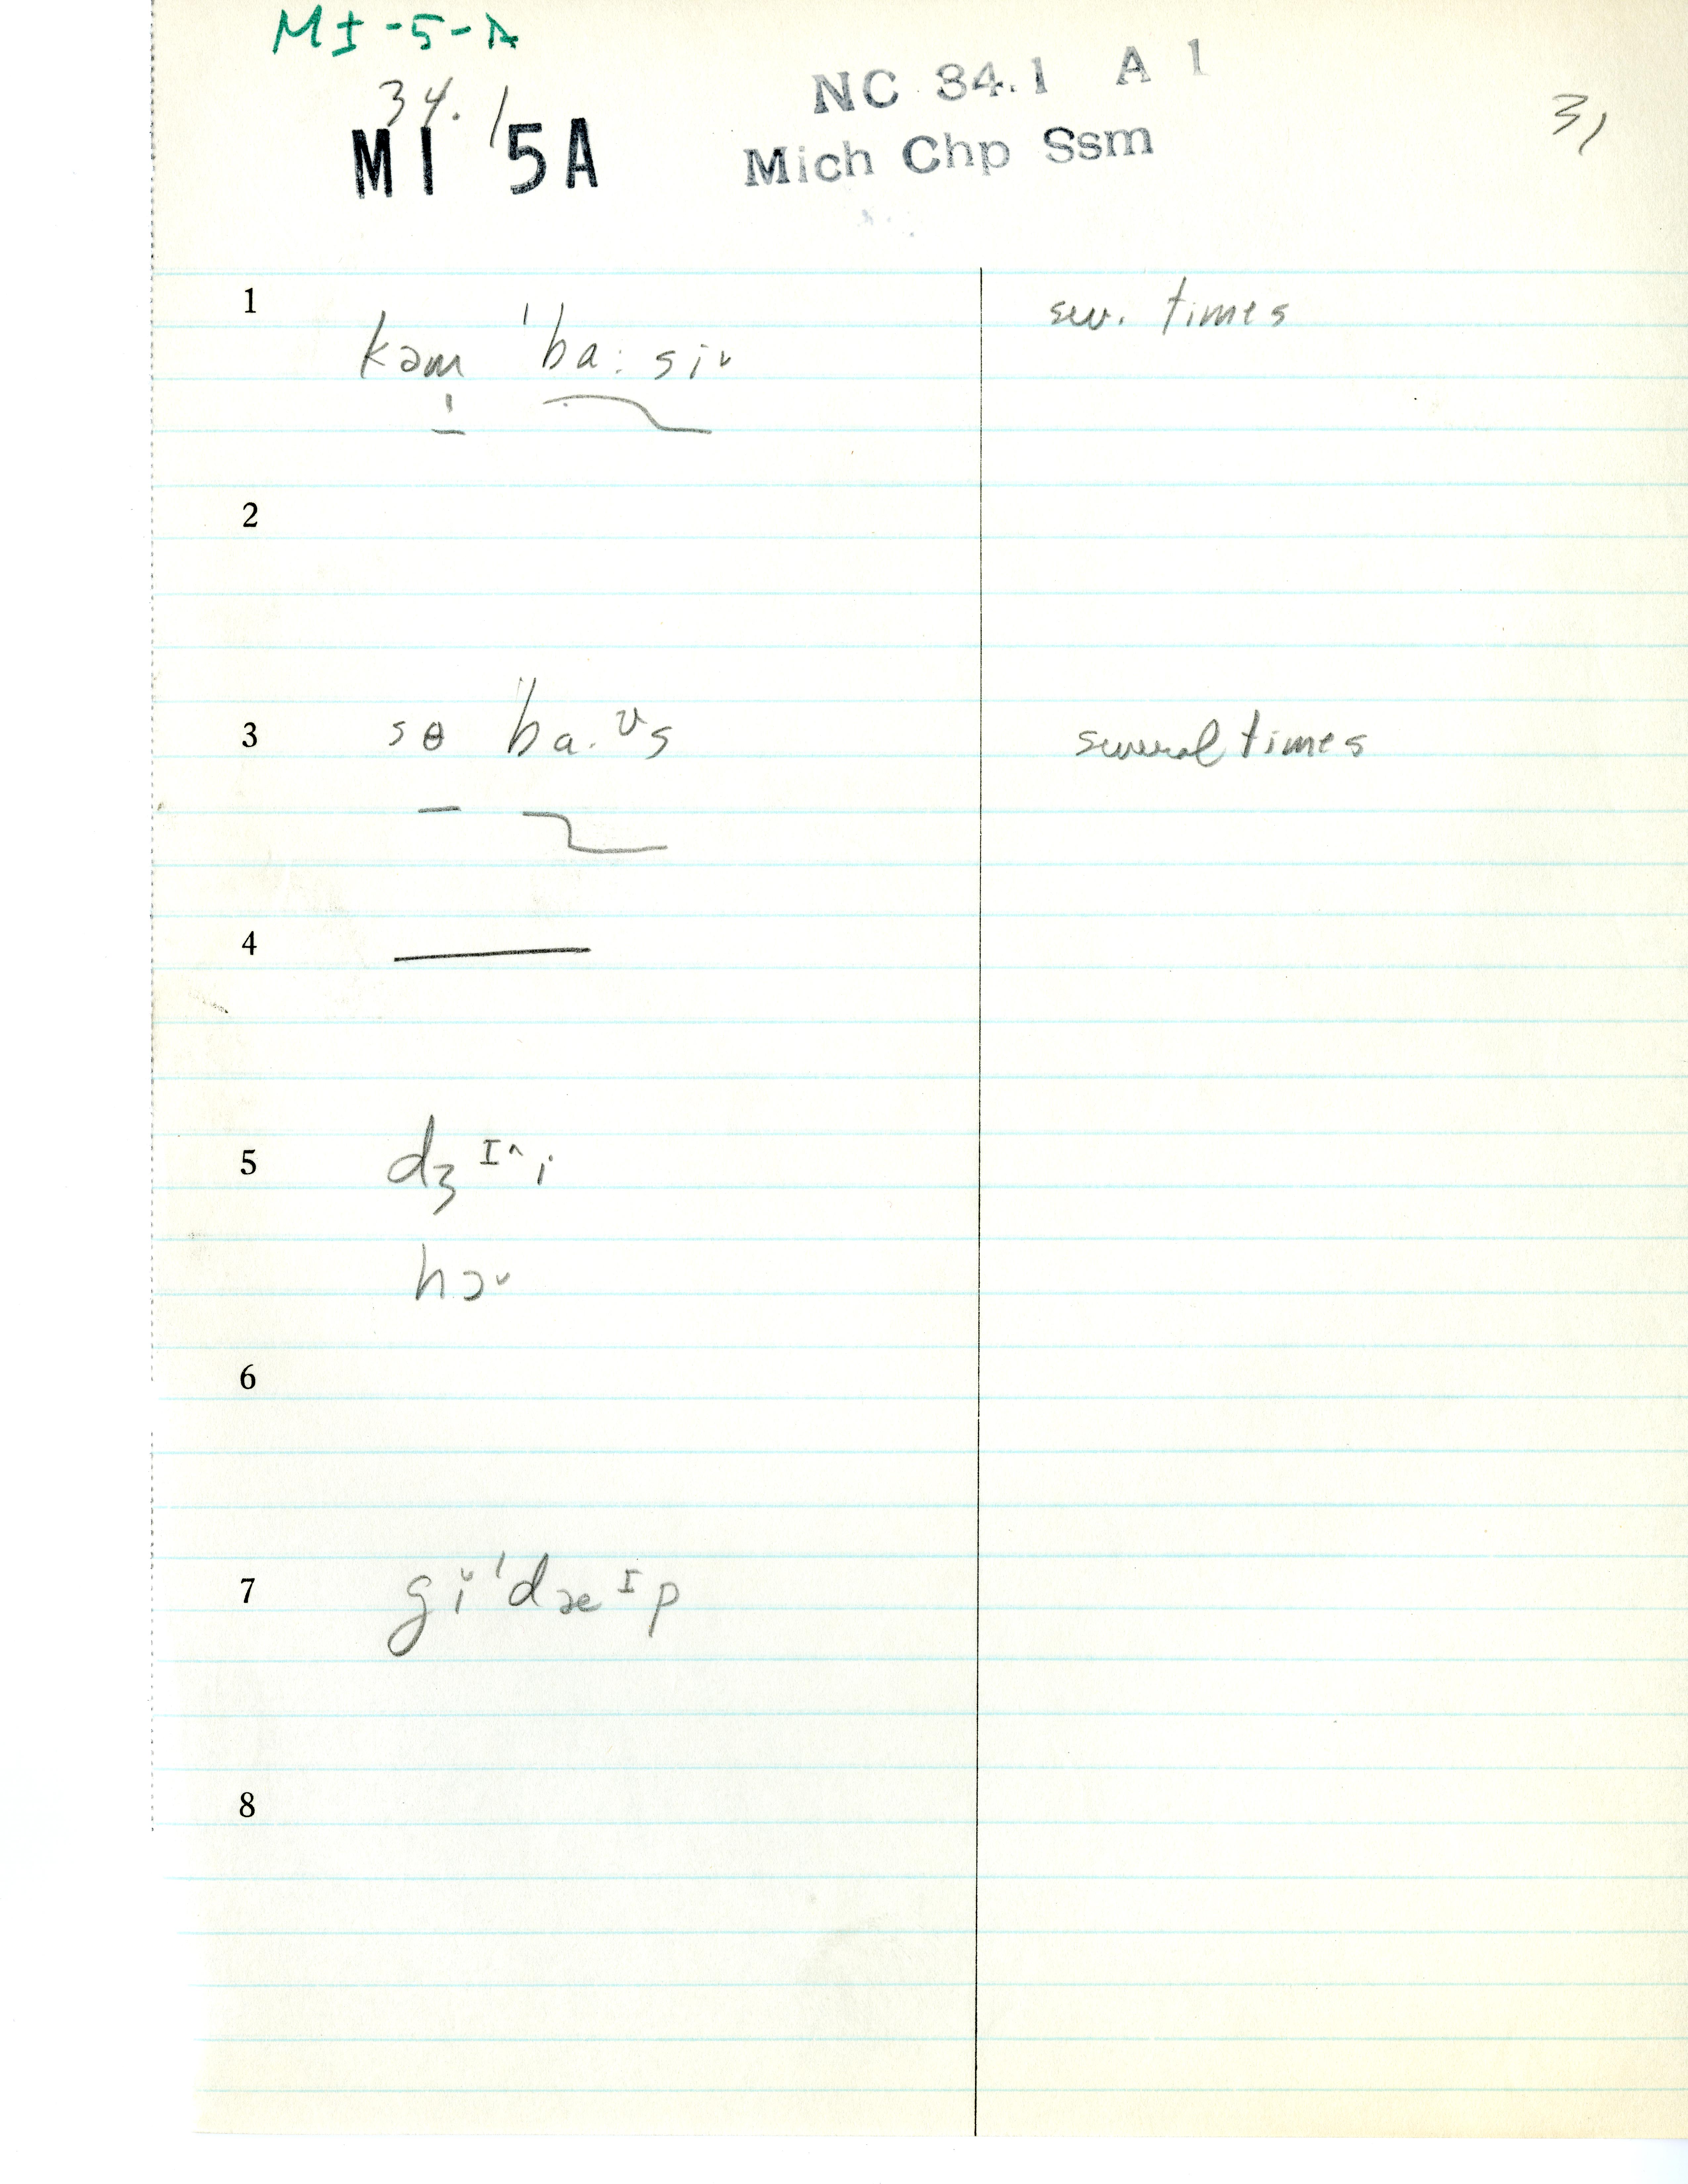 MI-5-A
34.1
MI 5A
NC 34.1 A 1
Mich Chp Ssm
31
1 kəm ˈba: si˅ sev. times
2
3 sɵ ˈba.ʊs several times
4 ———
5 dʒ ɪ^ i
hɔ˅
6
7 gi˅ ˈdæɪp
8